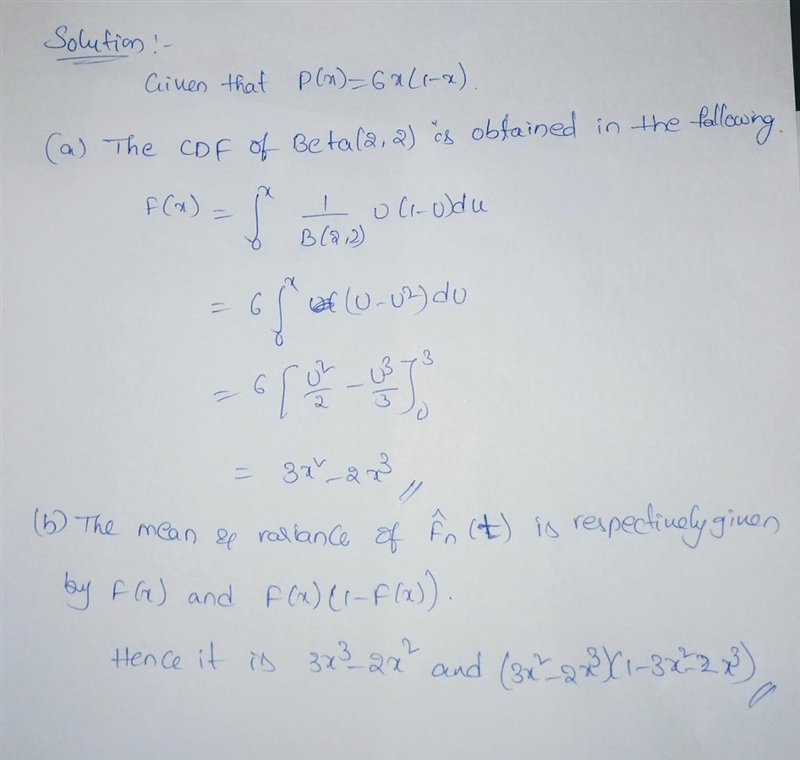 Solution :-
Given that P(x)=6x(1-x).
(a) The CDF of Beta(2,2) is obtained in the following.
F(x) = ∫₀ˣ 1/B(2,2) U(1-U)du
= 6 ∫₀ˣ (U-U²)dU
= 6 [U²/2 - U³/3]₀³
= 3x² - 2x³ //
(b) The mean & variance of F̂n(t) is respectively given
by F(x) and F(x)(1-F(x)).
Hence it is 3x³-2x² and (3x²-2x³)(1-3x²-2x³) //